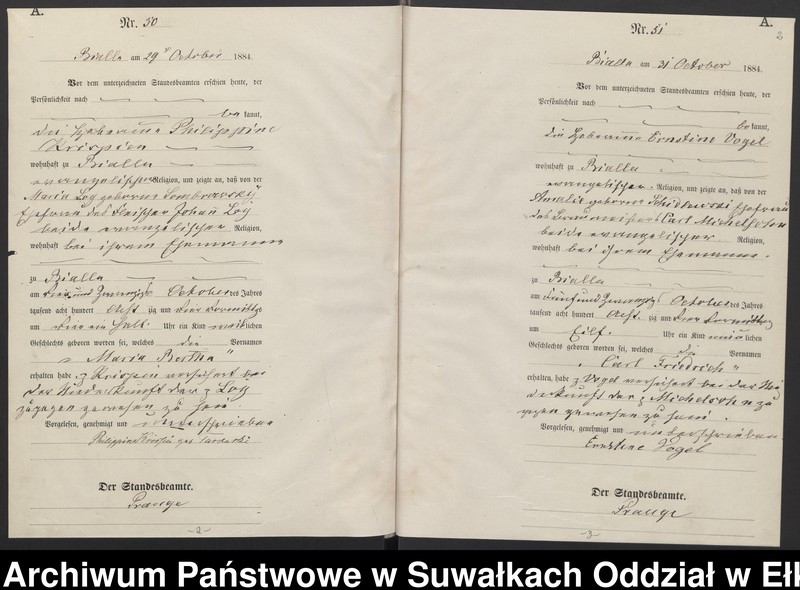 A.
Nr. 50
Bialla am 29 October 1884.
Vor dem unterzeichneten Standesbeamten erschien heute, der
Persönlichkeit nach
bekannt,
die Hebeamme Philippine
Krispien
wohnhaft zu Bialla
evangelischer Religion, und zeigte an, daß von der
Maria Log geborne
Ehefrau des Fleischer Johan Log
beide evangelischer Religion,
wohnhaft bei ihrem Ehemanne
zu Bialla
am drei und Zwanzigst October des Jahres
tausend acht hundert Acht zig und vier Vormittag
um drei ein halb Uhr ein Kind weiblichen
Geschlechts geboren worden sei, welches die Vornamen
„Maria Bertha“
erhalten habe. Krispien versichert bei
der Niederkunft der Log
zugegen gewesen zu sein
Vorgelesen, genehmigt und unterschrieben
Philippine Krispin geb
Der Standesbeamte.
Prange
-2-
A.
2
Nr. 51
Bialla am 31 October 1884.
Vor dem unterzeichneten Standesbeamten erschien heute, der
Persönlichkeit nach
bekannt,
die Hebeamme Ernstine Vogel
wohnhaft zu Bialla
evangelischer Religion, und zeigte an, daß von der
Amalie geborne Ehefrau
des Braumeisters Carl Michelsohn
beide evangelischer Religion,
wohnhaft bei ihrem Ehemanne
zu Bialla
am Fünf und Zwanzigst October des Jahres
tausend acht hundert Acht zig und vier Vormittag
um Eilf Uhr ein Kind männlichen
Geschlechts geboren worden sei, welches die Vornamen
„Carl Friedrich“
erhalten habe. Vogel versichert bei der Nie
derkunft der Michelsohn zu
gegen gewesen zu sein
Vorgelesen, genehmigt und unterschrieben
Ernstine Vogel
Der Standesbeamte.
Prange
-3-
Archiwum Państwowe w Suwałkach Oddział w Ełk